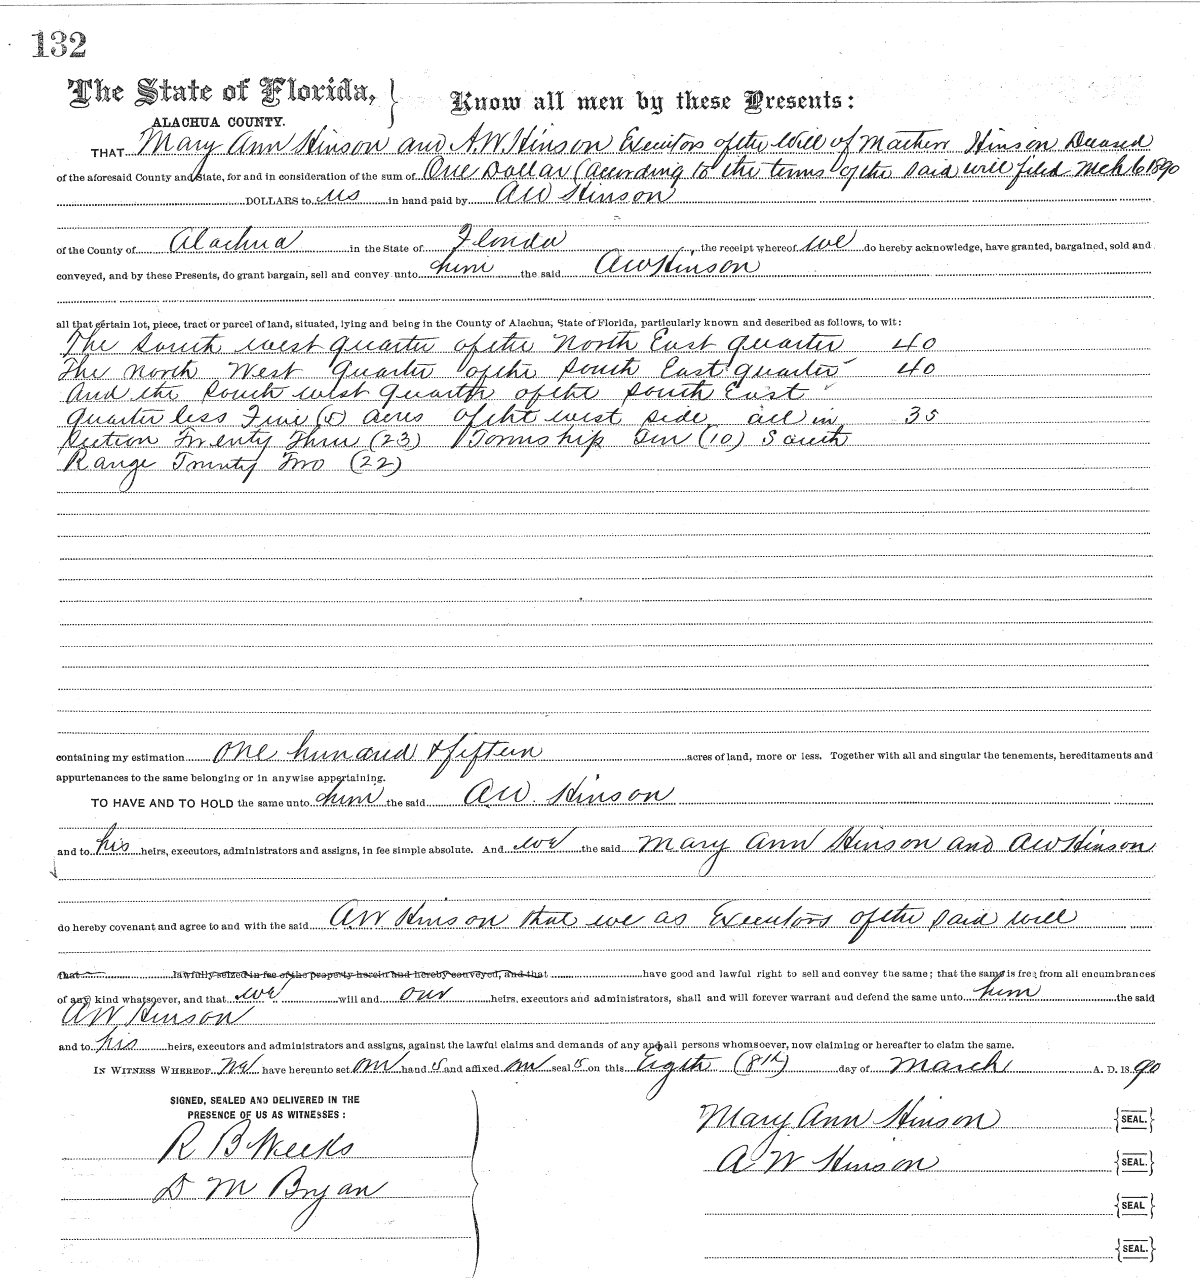 132
The State of Florida, } Know all men by these Presents:
ALACHUA COUNTY.
THAT Mary Ann Hinson and A.W Hinson Executors of the Will of Mathew Hinson Deceased
of the aforesaid County and State, for and in consideration of the sum of One Dollar (According to the terms of the said will filed Mch 6 1890
DOLLARS to us in hand paid by AW Hinson
of the County of Alachua in the State of Florida the receipt whereof we do hereby acknowledge, have granted, bargained, sold and
conveyed, and by these Presents, do grant bargain, sell and convey unto him the said AW Hinson
all that certain lot, piece, tract or parcel of land, situated, lying and being in the County of Alachua, State of Florida, particularly known and described as follows, to wit:
The South west quarter of the North East quarter 40
The North West quarter of the South East quarter 40
And the South west quarter of the South East
quarter less Five (5) acres of the west side, all in 35
Section Twenty Three (23) Township Ten (10) South
Range Twenty Two (22)
containing my estimation one hundred & fifteen acres of land, more or less. Together with all and singular the tenements, hereditaments and
appurtenances to the same belonging or in anywise appertaining.
TO HAVE AND TO HOLD the same unto him the said A.W. Hinson
and to his heirs, executors, administrators and assigns, in fee simple absolute. And we the said Mary Ann Hinson and AW Hinson
do hereby covenant and agree to and with the said A.W Hinson that we as Executors of the said will
that lawfully seized in fee of the property herein and hereby conveyed, and that have good and lawful right to sell and convey the same; that the same is free from all encumbrances
of any kind whatsoever, and that we will and our heirs, executors and administrators, shall and will forever warrant and defend the same unto him the said
AW Hinson
and to his heirs, executors and administrators and assigns, against the lawful claims and demands of any and all persons whomsoever, now claiming or hereafter to claim the same.
IN WITNESS WHEREOF We have hereunto set our hand s and affixed our seal s on this Eigth (8th) day of March A. D. 18 90
SIGNED, SEALED AND DELIVERED IN THE
PRESENCE OF US AS WITNESSES:
R B Weeks
D M Bryan
Mary Ann Hinson {SEAL.}
A W Hinson {SEAL.}
{SEAL}
{SEAL.}